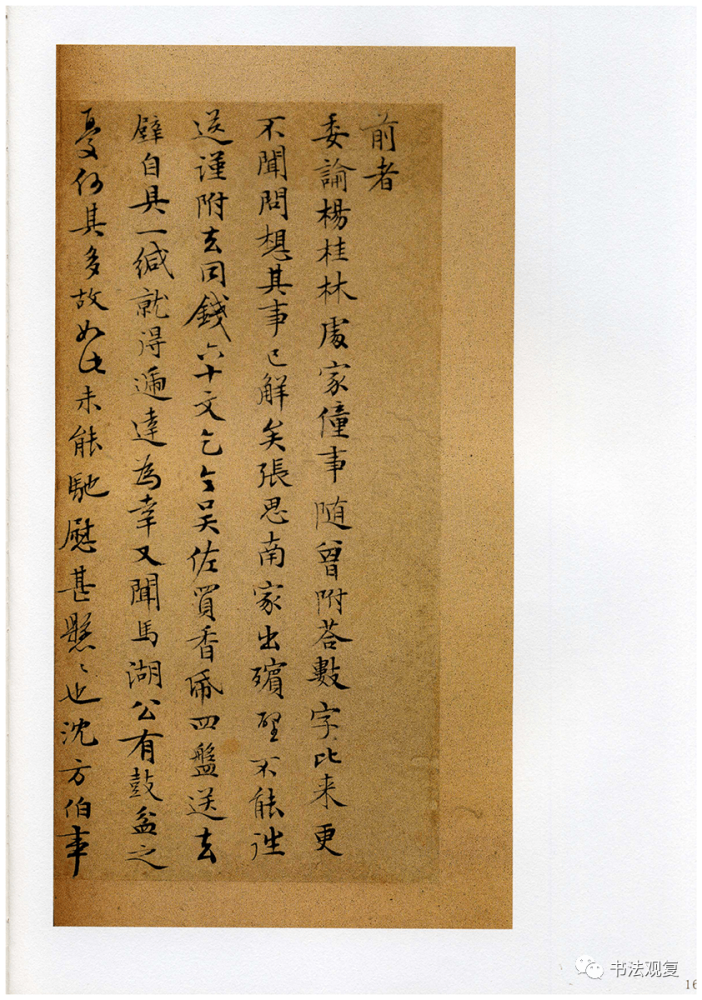 前者
委論楊桂林處家僮事随曾附荅數字比来更
不聞問想其事已解矣張思南家出殯聖不能往
送謹附去同錢六十文乞令吴佐買香帋四盤送去
聓自具一缄就得遍達為幸又聞馬湖公有鼓盆之
憂何其多故如此未能馳慰甚懸〻也沈方伯事
书法观复
16